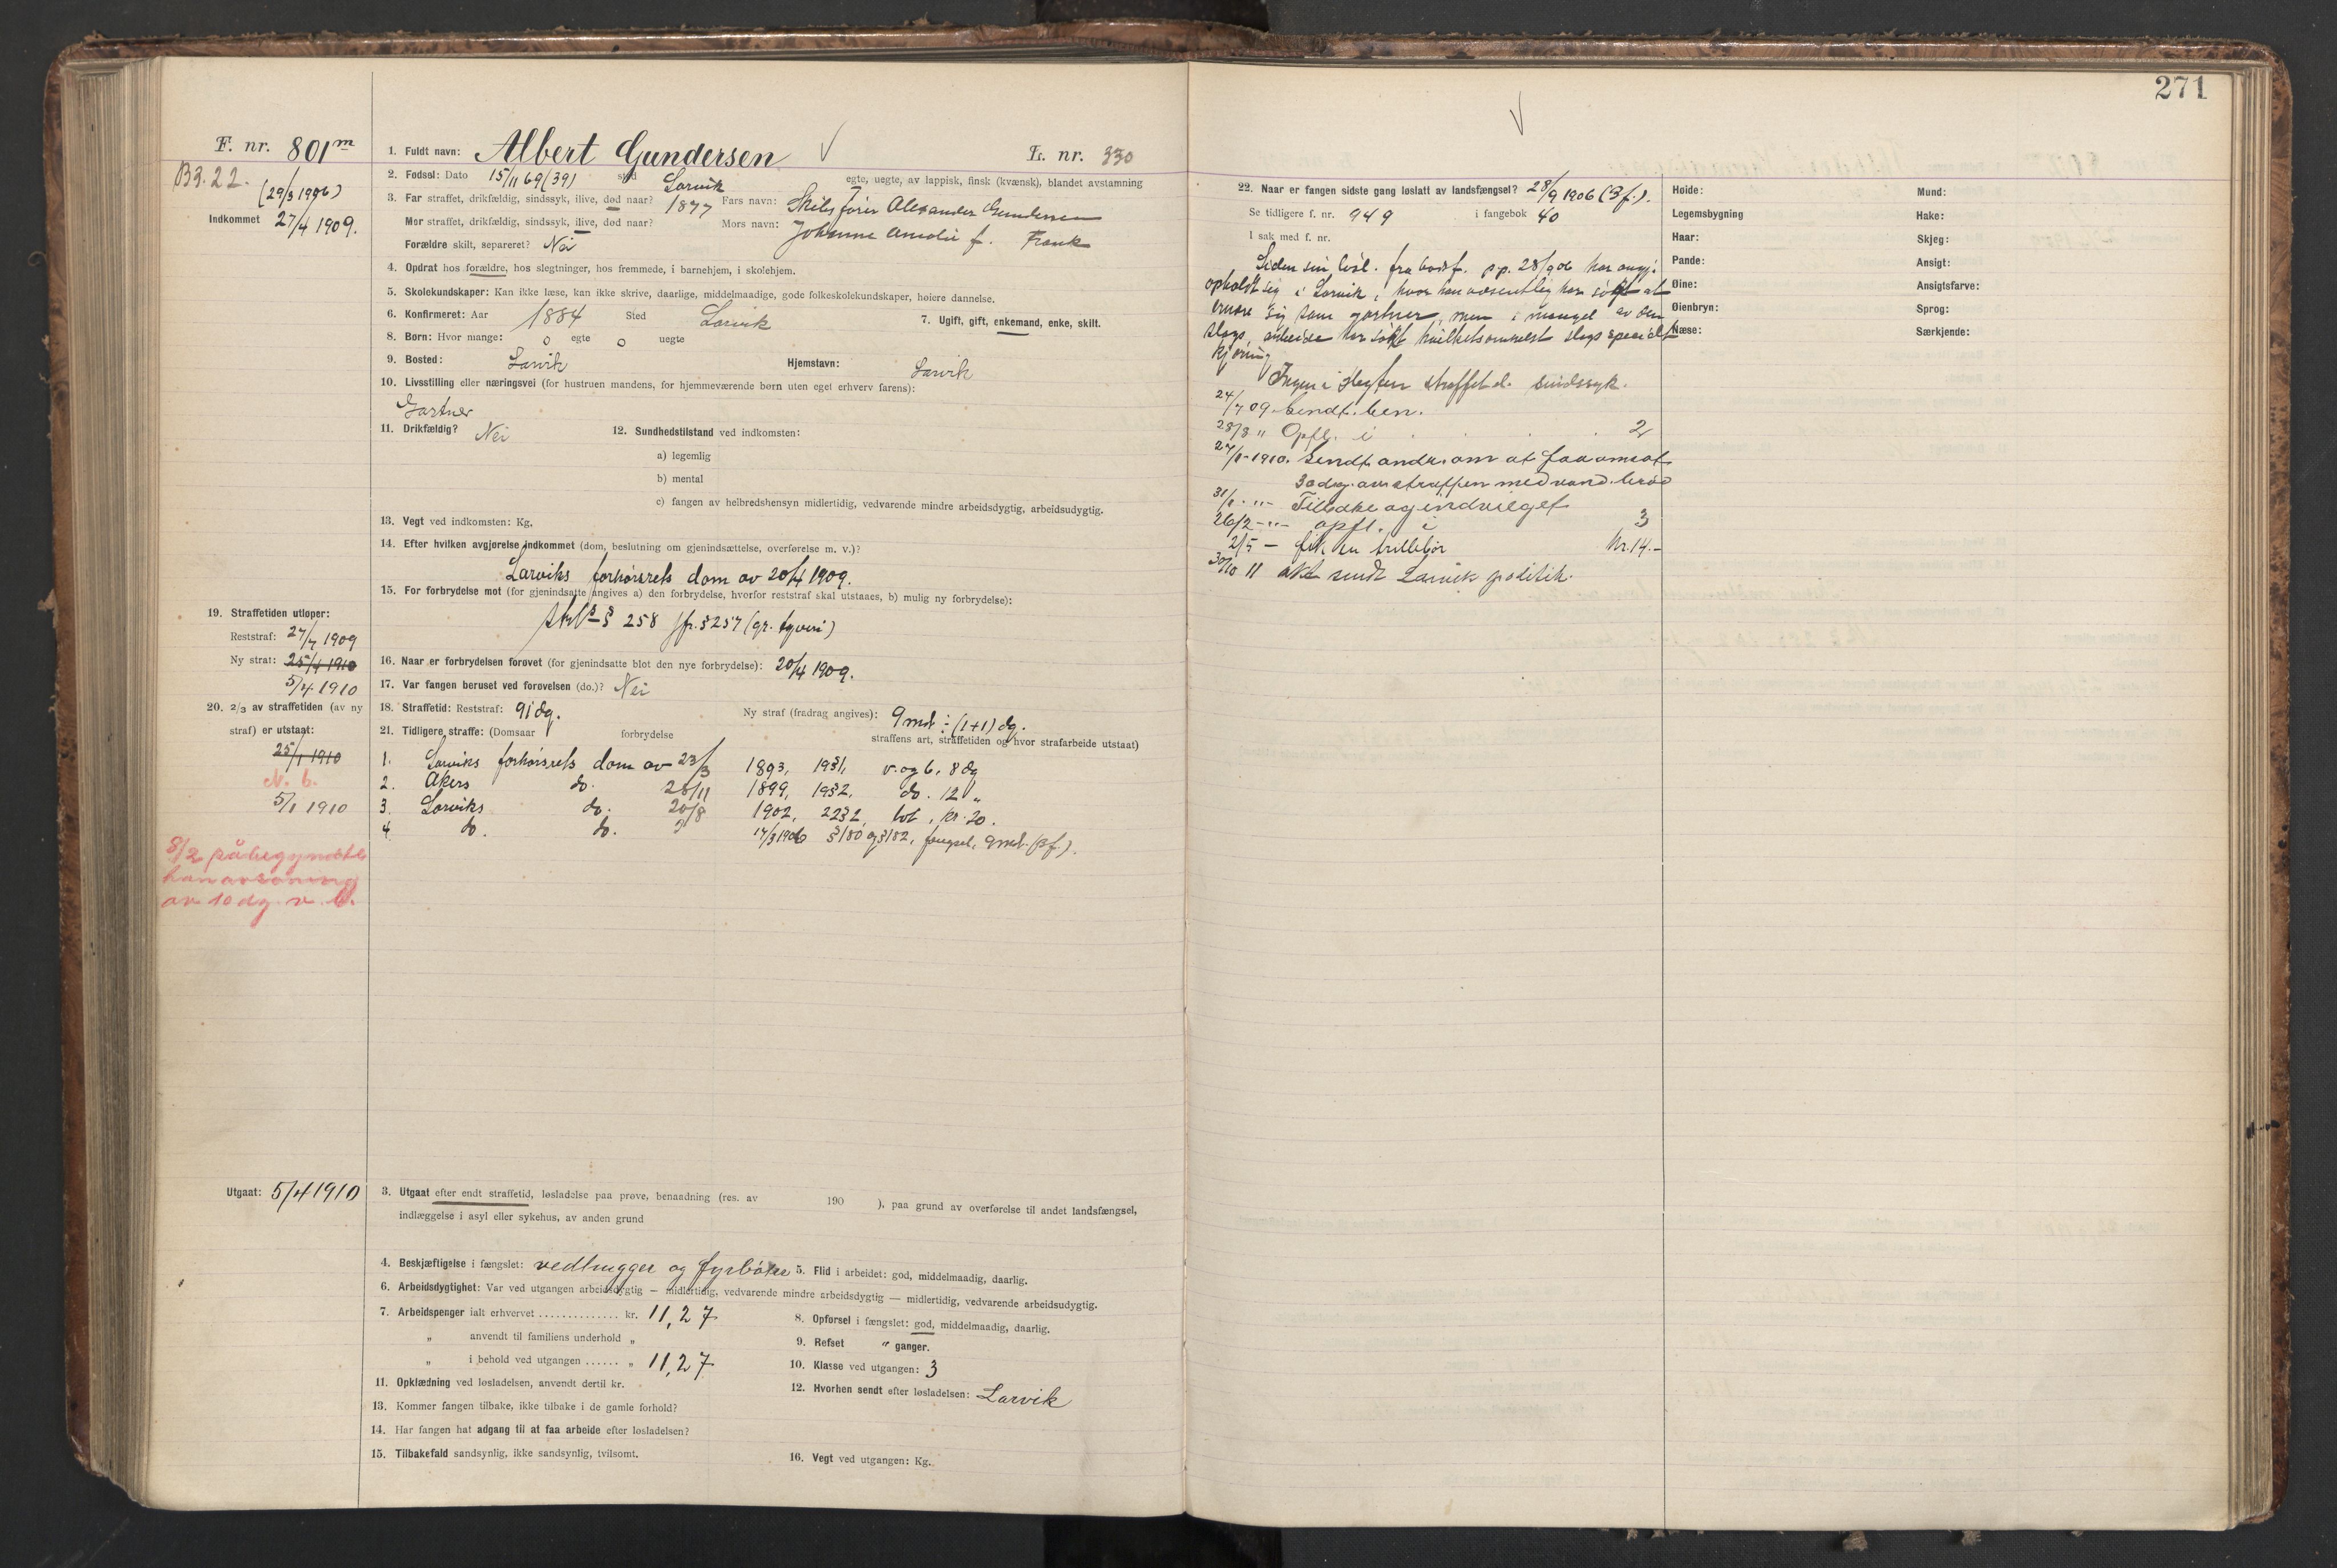 271
F. nr. 801m
B3. 22.
(29/3 1906)
Indkommet 27/4 1909.
1. Fuldt navn: Albert Gundersen L. nr. 330
2. Fødsel: Dato 15/11 69 (39) sted Larvik egte, uegte, av lappisk, finsk (kvænsk), blandet avstamning
3. Far straffet, drikfældig, sindssyk, ilive, død naar? 1877 Fars navn: Skibsfører Alexander Gundersen
Mor straffet, drikfældig, sindssyk, ilive, død naar? Mors navn: Johanne Amalie f. Frank
Forældre skilt, separeret? Nei
4. Opdrat hos forældre, hos slegtninger, hos fremmede, i barnehjem, i skolehjem.
5. Skolekundskaper: Kan ikke læse, kan ikke skrive, daarlige, middelmaadige, gode folkeskolekundskaper, høiere dannelse.
6. Konfirmeret: Aar 1884 Sted Larvik 7. Ugift, gift, enkemand, enke, skilt.
8. Børn: Hvor mange: 0 egte 0 uegte
9. Bosted: Larvik Hjemstavn: Larvik
10. Livsstilling eller næringsvei (for hustruen mandens, for hjemmeværende børn uten eget erhverv farens):
Gartner
11. Drikfældig? Nei 12. Sundhedstilstand ved indkomsten:
a) legemlig
b) mental
c) fangen av helbredshensyn midlertidig, vedvarende mindre arbeidsdygtig, arbeidsudygtig.
13. Vegt ved indkomsten: Kg.
14. Efter hvilken avgjørelse indkommet (dom, beslutning om gjenindsættelse, overførelse m. v.)?
Larviks forhørsrets dom av 20/4 1909.
15. For forbrydelse mot (for gjenindsatte angives a) den forbrydelse, hvorfor reststraf skal utstaaes, b) mulig ny forbrydelse):
§ 258 jfr. § 257 (gr. tyveri)
19. Straffetiden utløper:
Reststraf: 27/7 1909
Ny straf: 25/4 1910
5/4 1910
16. Naar er forbrydelsen forøvet (for gjenindsatte blot den nye forbrydelse): 20/4 1909.
17. Var fangen beruset ved forøvelsen (do.)? Nei
20. 2/3 av straffetiden (av ny
straf) er utstaat:
25/1 1910
N. b.
5/1 1910
18. Straffetid: Reststraf: 91 dg. Ny straf (fradrag angives): 9 md ÷ (1+1) dg.
21. Tidligere straffe: (Domsaar forbrydelse straffens art, straffetiden og hvor strafarbeide utstaat)
1. Larviks forhørsrets dom av 23/3 1893, 1931, v. og b. 8 dg
2. Akers do. 28/11 1899, 1932, do. 12 "
3. Larviks do. 20/8 1902, 2232, bot, kr. 20.
4 do. do. 17/3 1906 § 180 og § 182, fængsel, 9 md. (Bf.).
8/2 påbegyndte
han avsoning
av 10 dg v. b.
Utgaat: 5/4 1910
3. Utgaat efter endt straffetid, løsladelse paa prøve, benaadning (res. av 190 ), paa grund av overførelse til andet landsfængsel,
indlæggelse i asyl eller sykehus, av anden grund
4. Beskjæftigelse i fængslet: vedhugger og fyrbøter 5. Flid i arbeidet: god, middelmaadig, daarlig.
6. Arbeidsdygtighet: Var ved utgangen arbeidsdygtig — midlertidig, vedvarende mindre arbeidsdygtig — midlertidig, vedvarende arbeidsudygtig.
7. Arbeidspenger ialt erhvervet .............. kr. 11,27
" anvendt til familiens underhold "
" i behold ved utgangen ...... " 11,27
8. Opførsel i fængslet: god, middelmaadig, daarlig.
9. Refset " ganger.
10. Klasse ved utgangen: 3
11. Opklædning ved løsladelsen, anvendt dertil kr.
12. Hvorhen sendt efter løsladelsen: Larvik
13. Kommer fangen tilbake, ikke tilbake i de gamle forhold?
14. Har fangen hat adgang til at faa arbeide efter løsladelsen?
15. Tilbakefald sandsynlig, ikke sandsynlig, tvilsomt.
16. Vegt ved utgangen: Kg.
22. Naar er fangen sidste gang løslatt av landsfængsel? 28/9 1906 (Bf.).
Se tidligere f. nr. 949 i fangebok 40
I sak med f. nr.
Siden sin løsl. fra bodsf. pp. 28/9 06 har angj.
opholdt sig i Larvik, hvor han væsentlig har søgt at
ernære sig som gartner, men i mangel av den
slags arbeide har søkt hvilketsomhelst slags specielt
kjøring
Ingen i slegten straffet el. sindssyk.
24/7 09 Sendt ben.
28/8 " Opfl. i . . . 2
27/1-1910. Sendt andr. om at faa omsat
30 dag. av straffen med vand. brød
31/1 - " - Tilbake og indvilget
26/2 - " - opfl. i 3
2/5 — fik en trillebør kr. 14.-
30/10 11 akt sendt Larvik politik.
Høide:
Legemsbygning
Haar:
Pande:
Øine:
Øienbryn:
Næse:
Mund:
Hake:
Skjeg:
Ansigt:
Ansigtsfarve:
Sprog:
Særkjende: